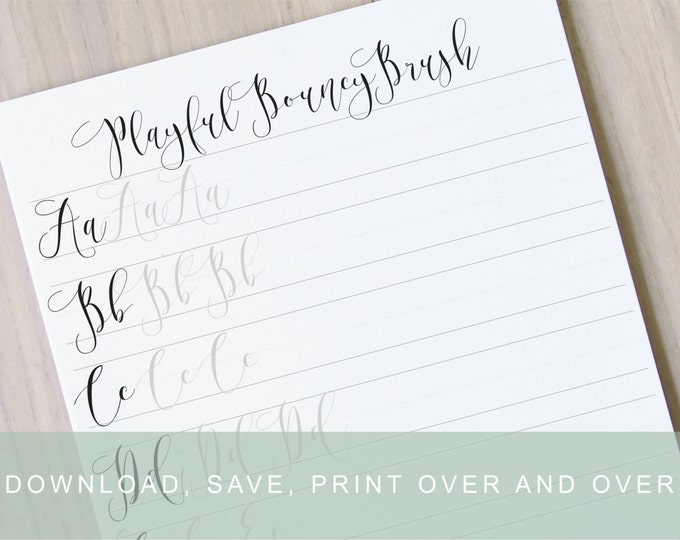 Playful Bouncy Brush
Aa Aa Aa
Bb Bb Bb
Cc Cc Cc
Dd Dd Dd
DOWNLOAD, SAVE, PRINT OVER AND OVER